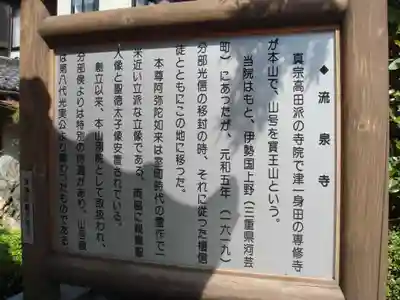 ◆ 流泉寺
真宗高田派の寺院で津一身田の専修寺
が本山で、山号を寶王山という。
当院はもと、伊勢国上野(三重県河芸
町)にあったが、元和五年(一六一九)
分部光信の移封の時、それに従った檀信
徒とともにこの地に移った。
本尊阿弥陀如来は室町時代の霊作で一
米近い立派な立像である。両脇に親鸞聖
人像と聖徳太子像が安置されている。
創立以来、本山 院として取扱われ、
分部侯よりは特別の待遇があり、山号額
は第八代光実公より賜わったものである